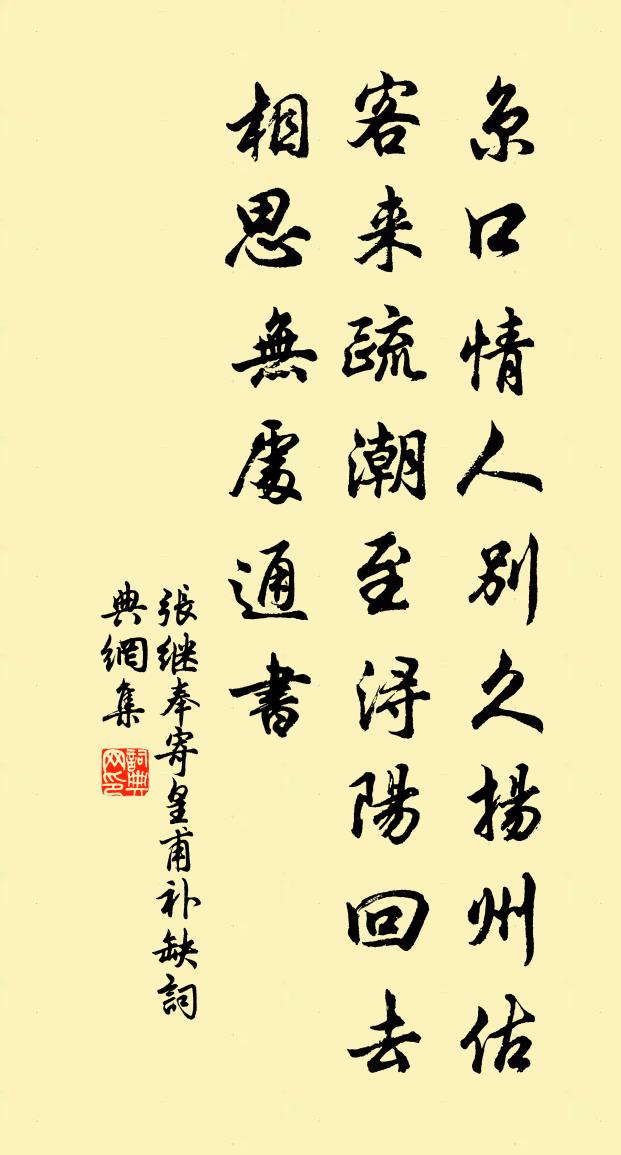 京口情人别久揚州估
客来疏潮至潯陽回去
相思無處通書
張继奉寄皇甫补缺詞
典網集
詞典
网印